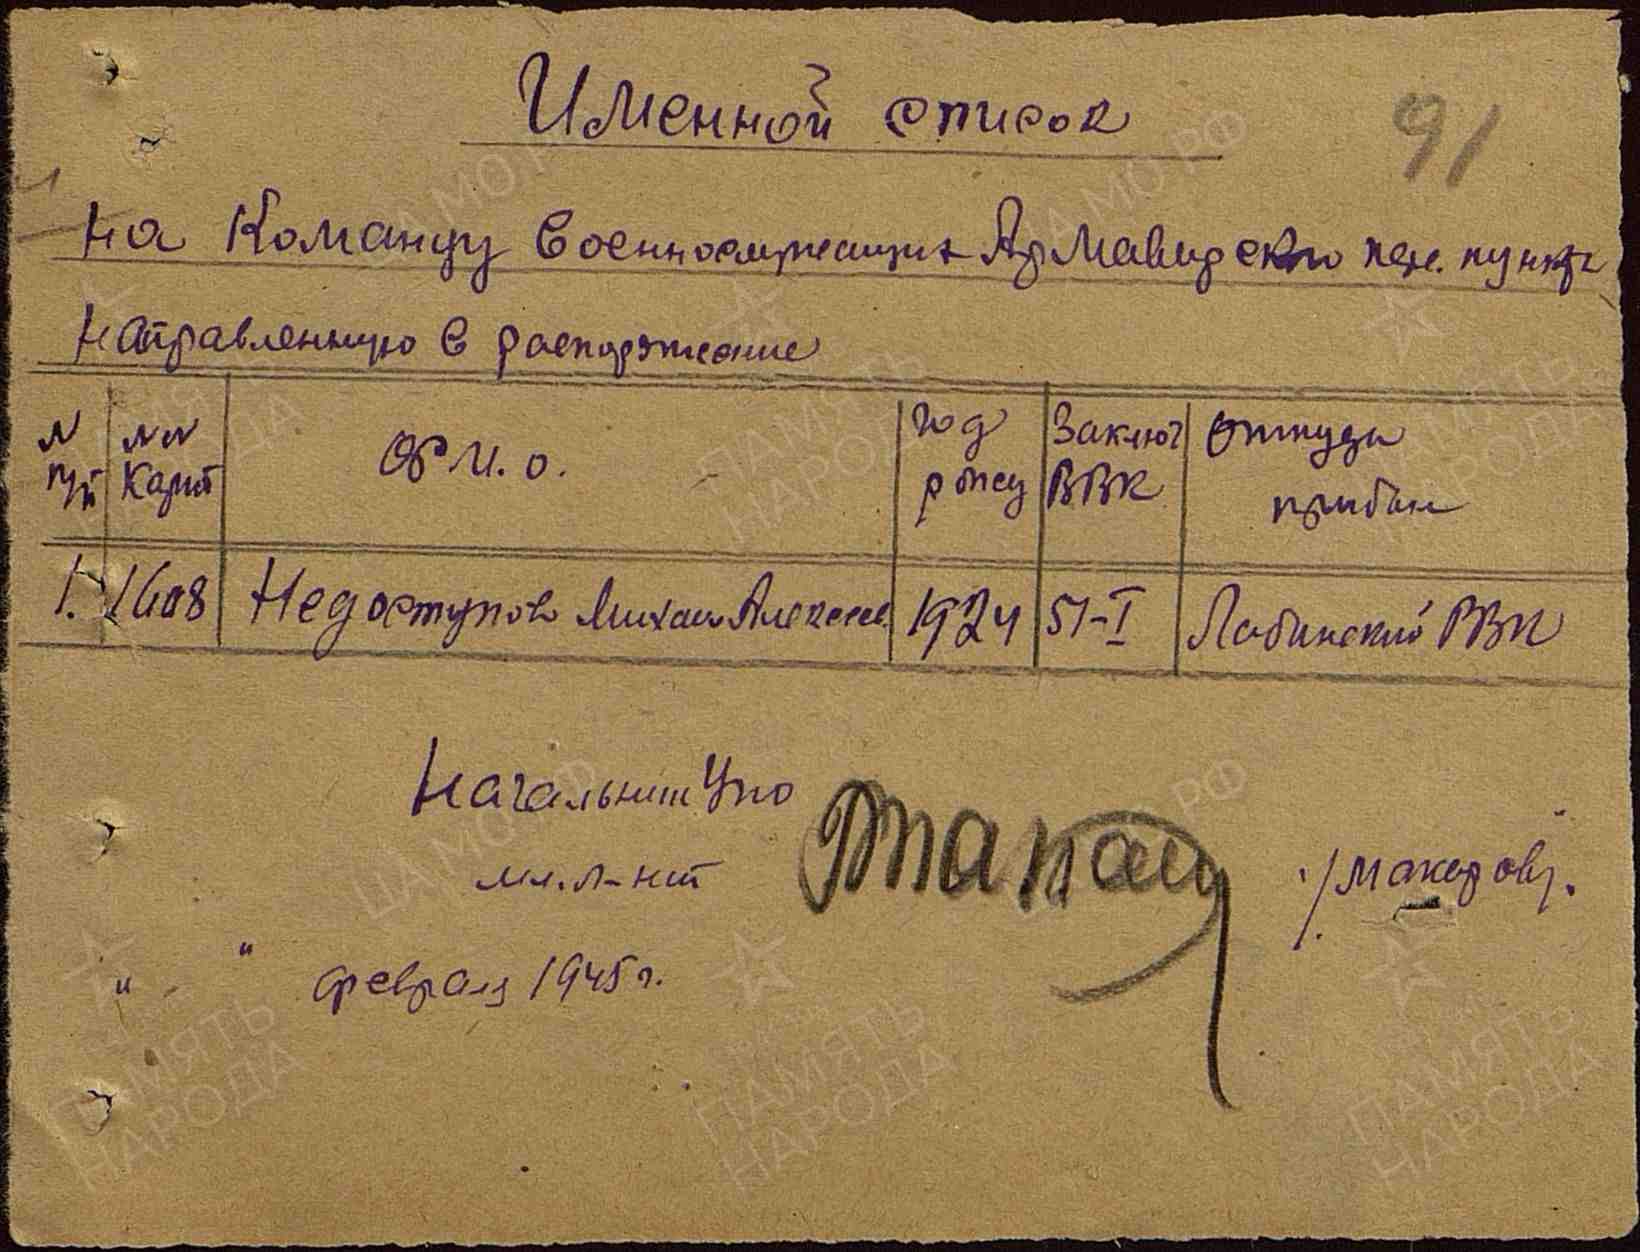 Именной список
91
на команду военнослужащих Армавирского пер. пункта
направленную в распоряжение
N п/п
NN Карт
Ф.И.О.
год рожд
Заключ ВВК
Откуда прибыл
1. 1608 Недоступов Михаил Алексеев. 1924 51-I Лабинский РВК
Начальник
мл. л-нт
/Макаров/.
" " февраля 1945 г.
ЦАМО.РФ
ПАМЯТЬ НАРОДА